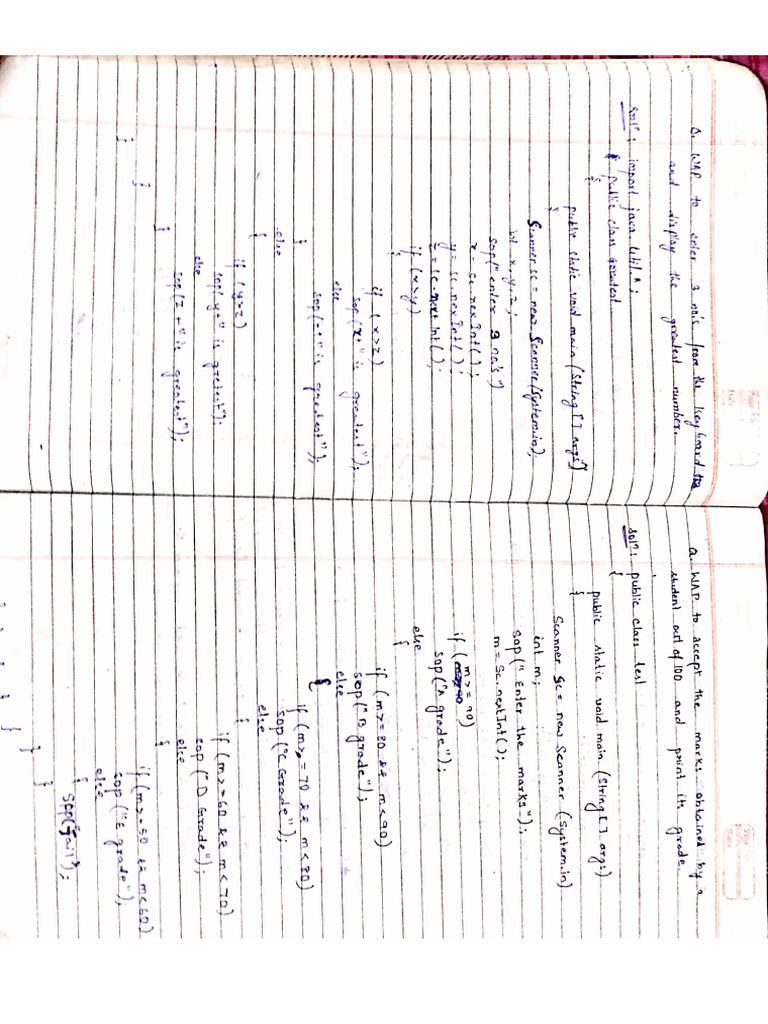 Q. WAP to enter 3 no's from the keyboard
and display the greatest number.
Solⁿ: import java.util.*;
public class greatest
{
public static void main (String [] args)
{
Scanner sc = new Scanner(System.in);
int x, y, z;
sop("enter 3 no's")
x = sc.nex Int();
y = sc.nex Int();
z = sc.next Int();
if (x>y)
{
if (x>z)
sop(x+" is greatest");
else
sop(z+" is greatest");
}
else
{
if (y>z)
sop(y+" is gretest");
else
sop(z+" is greatest");
}
}
}
Q. WAP to accept the marks obtained by a
student out of 100 and print its grade
Solⁿ: public class test
{
public static void main (String[] args)
{
Scanner Sc = new Scanner (System.in)
int m;
sop(" Enter the marks");
m = Sc.nextInt();
if (m>=90)
sop("A grade");
else
{
if (m>=80 && m<90)
sop("B grade");
else
{
if (m>=70 && m<80)
sop("C Grade");
else
{
if (m>=60 && m<70)
sop("D Grade");
else
{
if (m>=50 && m<60)
sop("E grade");
else
{
sop("fail");
}
}
}